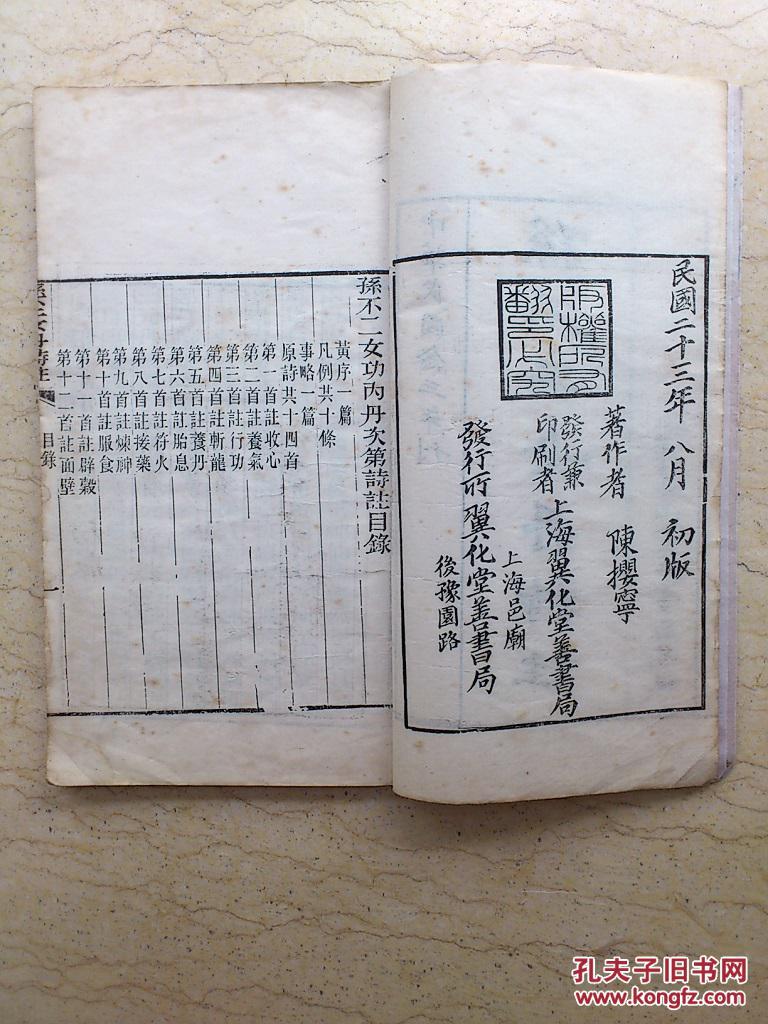 民國二十三年八月初版
版權所有
翻印必究
著作者 陳攖寧
發行兼
印刷者
上海翼化堂善書局
發行所 翼化堂善書局
上海邑廟
後豫園路
孫不二女功內丹次第詩註目錄
黃序一篇
凡例共十條
事略一篇
原詩共十四首
第一首註收心
第二首註養氣
第三首註行功
第四首註斬龍
第五首註養丹
第六首註胎息
第七首註符火
第八首註接藥
第九首註煉神
第十首註服食
第十一首註辟穀
第十二首註面壁
孫不二女丹詩註
目錄
一
孔夫子旧书网
www.kongfz.com